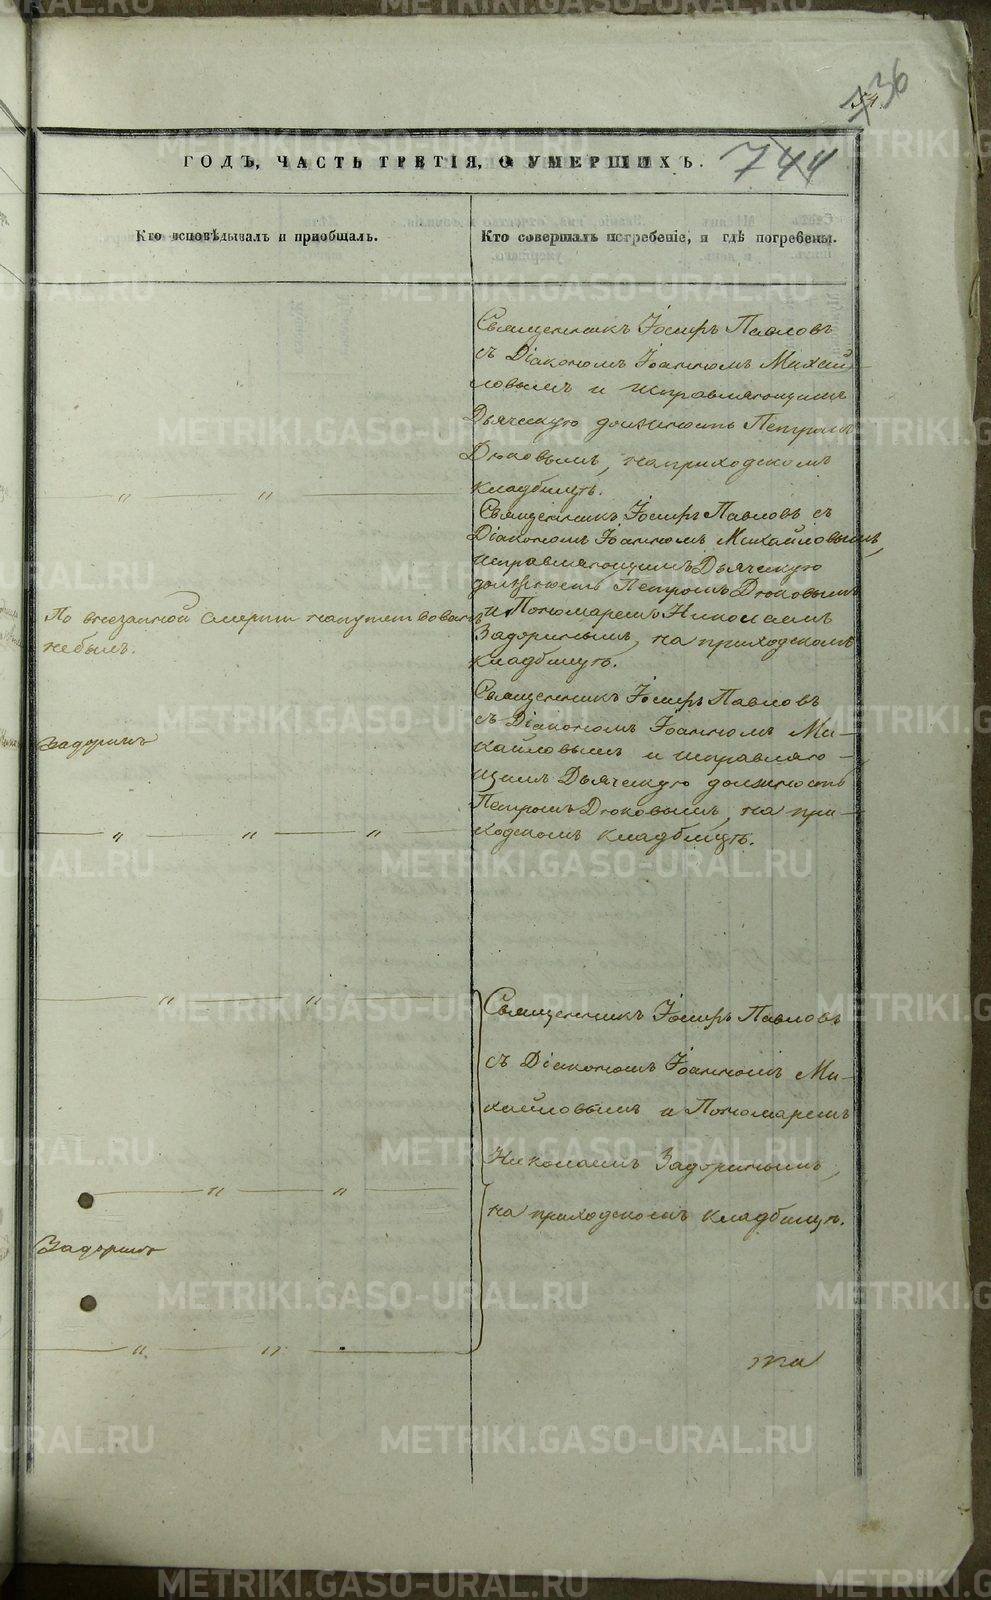 36
744
ГОДЪ, ЧАСТЬ ТРЕТІЯ, О УМЕРШИХЪ.
Кто исповѣдывалъ и пріобщалъ.
Кто совершалъ погребеніе, и гдѣ погребены.
Священникъ Іосифъ Павловъ
съ Діакономъ Іоанномъ Михай-
ловымъ и исправляющимъ
Дьяческую должность Петромъ
Дюковымъ, на приходскомъ
кладбищѣ.
Священникъ Іосифъ Павловъ съ
Діакономъ Іоанномъ Михайловымъ,
исправляющимъ Дьяческую
должность Петромъ Дюковымъ
и Пономаремъ Николаемъ
Задоринымъ, на приходскомъ
кладбищѣ.
По внезапной смерти напутствованъ
небылъ.
Священникъ Іосифъ Павловъ
съ Діакономъ Іоанномъ Ми-
хайловымъ и исправляю-
щимъ Дьяческую должность
Петромъ Дюковымъ, на при-
ходскомъ кладбищѣ.
Задоринъ
Священникъ Іосифъ Павловъ
съ Діакономъ Іоанномъ Ми-
хайловымъ и Пономаремъ
Николаемъ Задоринымъ,
на приходскомъ кладбищѣ.
Задоринъ
METRIKI.GASO-URAL.RU